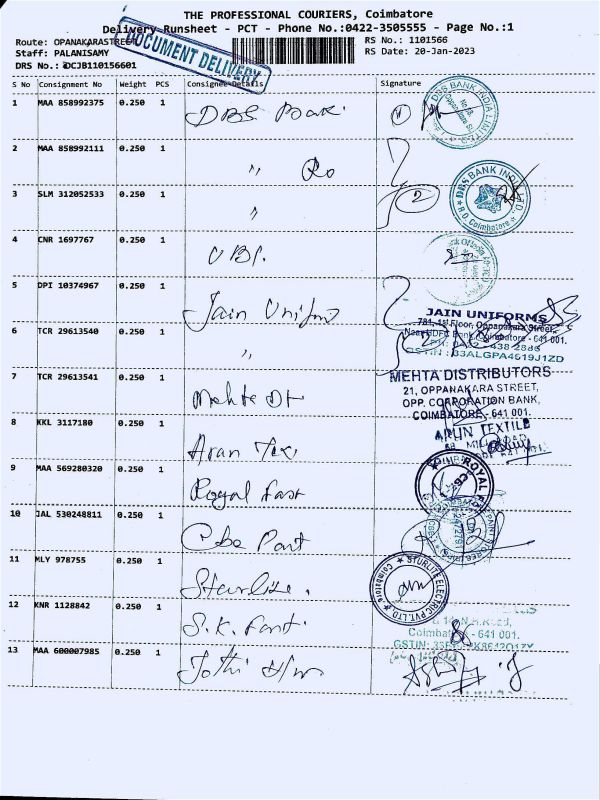 THE PROFESSIONAL COURIERS, Coimbatore
Delivery Runsheet - PCT - Phone No.:0422-3505555 - Page No.:1
Route: OPANAKARASTREET
RS No.: 1101566
Staff: PALANISAMY
RS Date: 20-Jan-2023
DRS No.: DCJB110156601
DOCUMENT DELIVERY
S No Consignment No Weight PCS Consignee Details Signature
1 MAA 858992375 0.250 1 DBS Bank
DBS BANK INDIA LIMITED
2 MAA 858992111 0.250 1 " Ro
3 SLM 312052533 0.250 1 "
DBS BANK INDIA LTD
R.O. Coimbatore
4 CNR 1697767 0.250 1
5 DPI 10374967 0.250 1 Jain Uniform
JAIN UNIFORMS
781, 1st Floor, Oppanakara Street,
Near HDFC Bank, Coimbatore - 641 001.
GSTIN : 33ALGPA4619J1ZD
6 TCR 29613540 0.250 1 "
7 TCR 29613541 0.250 1 Mehta
MEHTA DISTRIBUTORS
21, OPPANAKARA STREET,
OPP. CORPORATION BANK,
COIMBATORE - 641 001.
8 KKL 3117180 0.250 1 Arun Tex
ARUN TEXTILE
MILL ROAD
9 MAA 569280320 0.250 1 Royal Fast
ROYAL
10 JAL 530248811 0.250 1 Cbe Paint
11 MLY 978755 0.250 1 Sturlite
STURLITE ELECTRIC PVT. LTD.
Coimbatore
12 KNR 1128842 0.250 1 S.K.
Coimbatore - 641 001.
13 MAA 600007985 0.250 1 Jothi